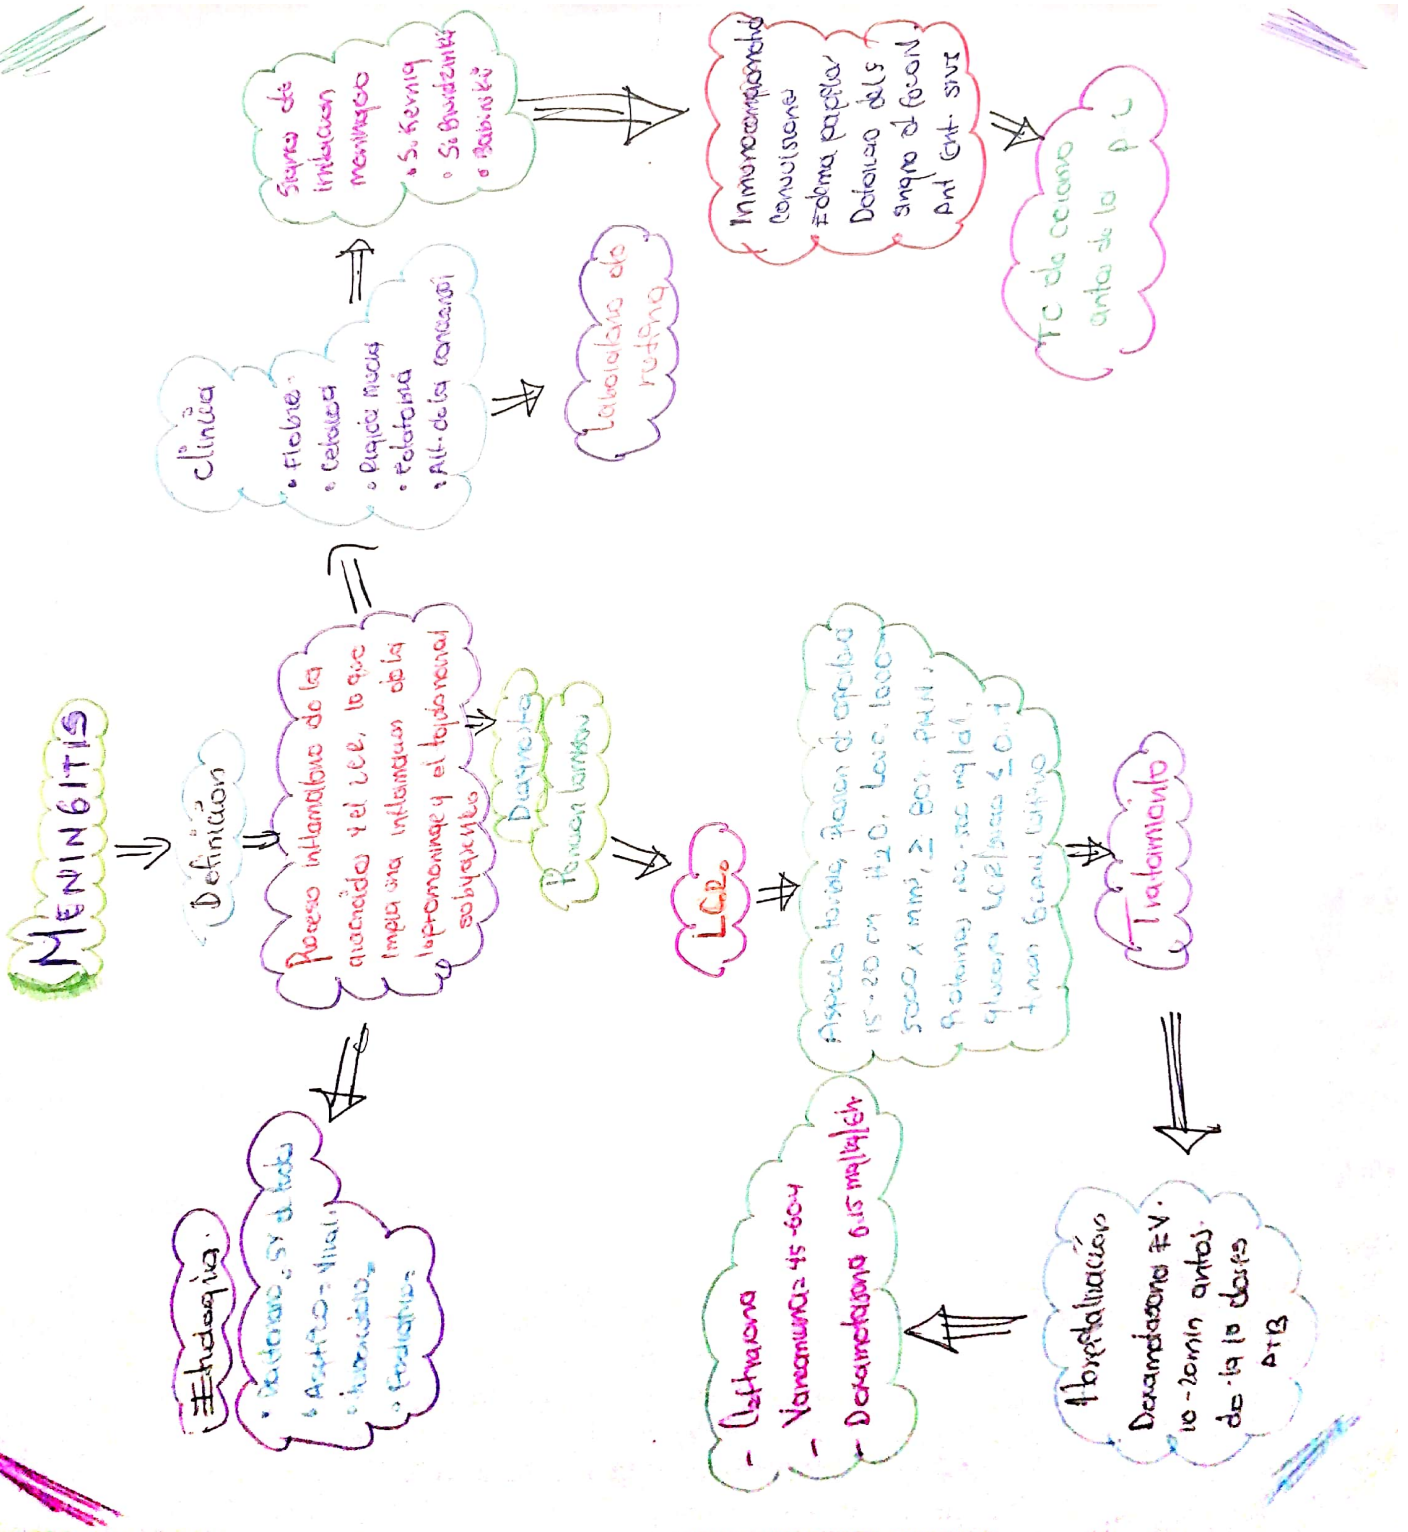 MENINGITIS
Definición
Proceso inflamatorio de la
aracnoides y el LCR, lo que
implica una inflamacion de la
leptomeninge y el tejido neural
subyacente
Etiologia.
• Bacteriano
• Aséptico = Viral,
• tuberculosa
Clinica
• Fiebre
• Cefalea
• Rigidez nucal
• Fotofobia
• Alt. de la
Signos de
irritacion
meningeo
• S. Kernig
• S. Brudzinki
• Babinski
Laboratorio de
rutina
Inmunocomprometido
Convulsiones
Edema papilar
Deterioro del S
signo d focaN
Ant Enf. SNC
TC de craneo
antes de la p.L
Diagnostico
Puncion lumbar
LCR.
Aspecto turbio, Presion d apertura
15-20 cm H2O, Leuc. 1000-
5000 x mm³, ≥ 80% PMN,
Proteinas 100-500 mg/dl,
glucosa LCR/sérica ≤ 0.4
tincion GRAM
Tratamiento
Hospitalización
Dexametasona EV.
10-20min antes.
de la 1º dosis
ATB
- Ceftriaxona
- Vancomicina = 45-60
- Dexametasona 0.15 mg/kg/6h